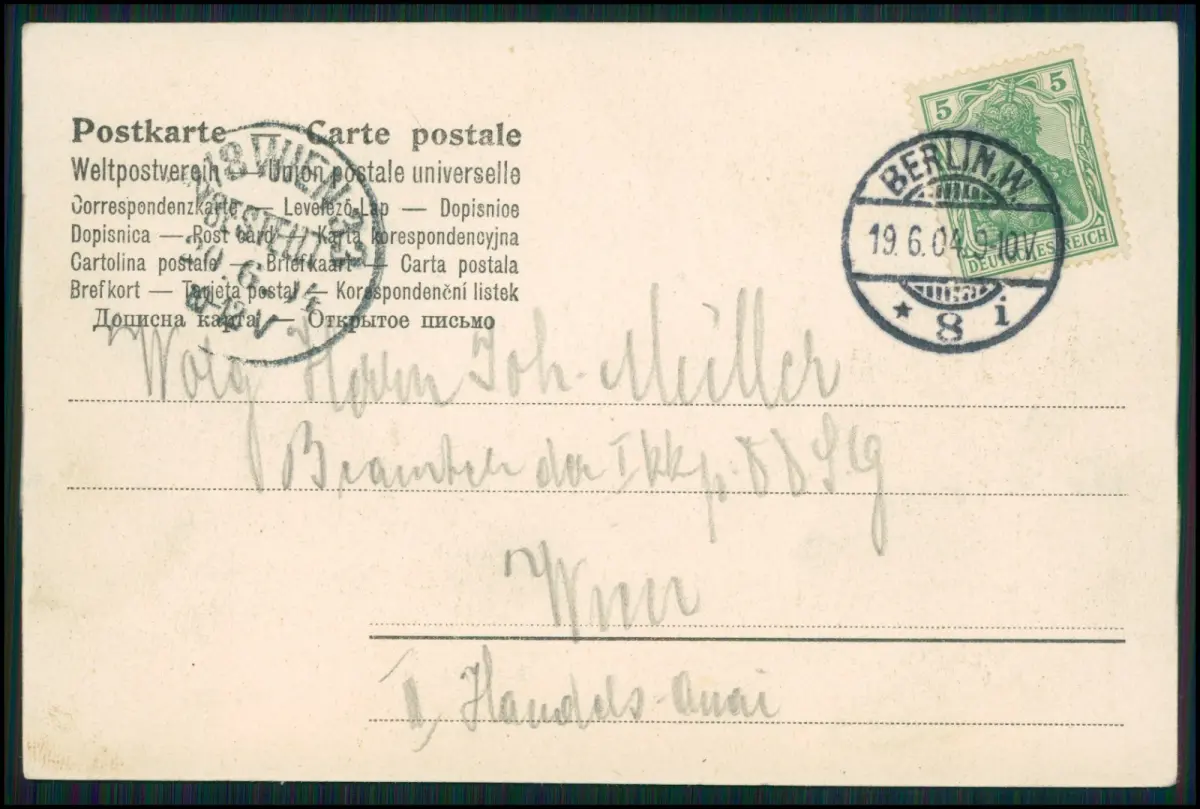 Postkarte — Carte postale
Weltpostverein — Union postale universelle
Correspondenzkarte — Levelező-Lap — Dopisnice
Dopisnica — Post card — Karta korespondencyjna
Cartolina postale — Briefkaart — Carta postala
Brefkort — Tarjeta postal — Korespondenční listek
Дописна карта — Открытое письмо
18 WIEN
BESTELLT
20.6.04
5
5
DEUTSCHES REICH
BERLIN.W.
19.6.04.9-10V.
* 8 i
Joh. Müller
Beamter der
Wien
Handels-Quai